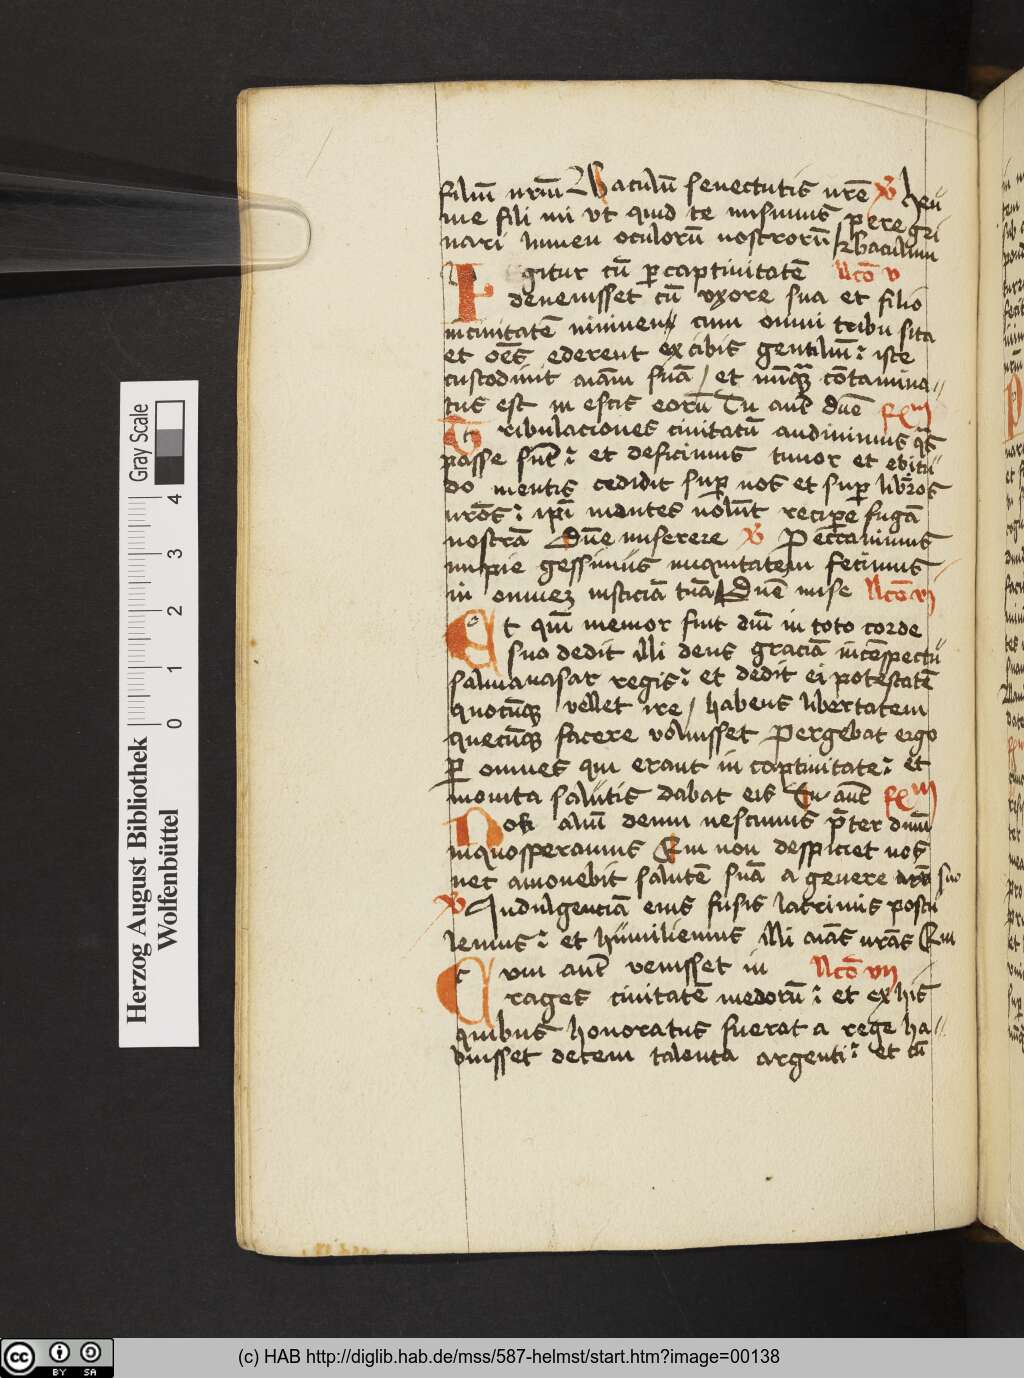 filiu͞ nr͞m Baculu͞ senectutis nr͞e ℣ heu
me fili mi vt quid te misimus peregri
nari lumen oculoru͞ nostroru͞ baculum
Igitur cu͞ p captiuitate͞ l͞co v
deuenisset cu͞ vxore sua et filio
in ciuitate͞ niniuen cum omni tribu sita
et o͞es ederent ex cibis gentiliu͞ iste
custodiuit a͞iam sua͞ / et nu͞q͞ co͞tamina //
tus est in escis eoru͞ Tu aut͞ dn͞e
Tribulaciones ciuitatu͞ audiuimus q͞s
passe su͞t et deficimus timor et ebitu
do mentis cedidit sup nos et sup lib͞ros
nr͞os ip͞i montes nolu͞t recipe fuga͞
nostra͞ dn͞e miserere ℣ Peccauimus
impie gessimus iniquitatem fecimus
in omnez iusticia͞ tua͞ Dn͞e mise l͞co vj
Et qui͞ memor fuit dn͞i in toto corde
suo dedit illi deus gracia͞ in co͞spectu
salmanasar regis et dedit ei potestate͞
quocu͞q vellet ire / habens libertatem
quecu͞q facere voluisset Pergebat ergo
p omnes qui erant in captiuitate et
monita salutis dabat eis Tu aut͞
Nos aliu͞ deum nescimus p͞ter dn͞m
in quo speramus Qui non despiciet nos
nec amouebit salute͞ sua͞ a genere nr͞o suo
℣ Indulgencia͞ eius fusis lacrimis postu
lemus et humiliemus illi a͞ias nr͞as Qui
Cum aut͞ venisset in l͞co vij
rages ciuitate͞ medoru͞ et ex his
quibus honoratus fuerat a rege ha //
buisset decem talenta argenti et cu͞
Herzog August Bibliothek
Wolfenbüttel
0 1 2 3 4 Gray Scale
cc BY SA
(c) HAB http://diglib.hab.de/mss/587-helmst/start.htm?image=00138